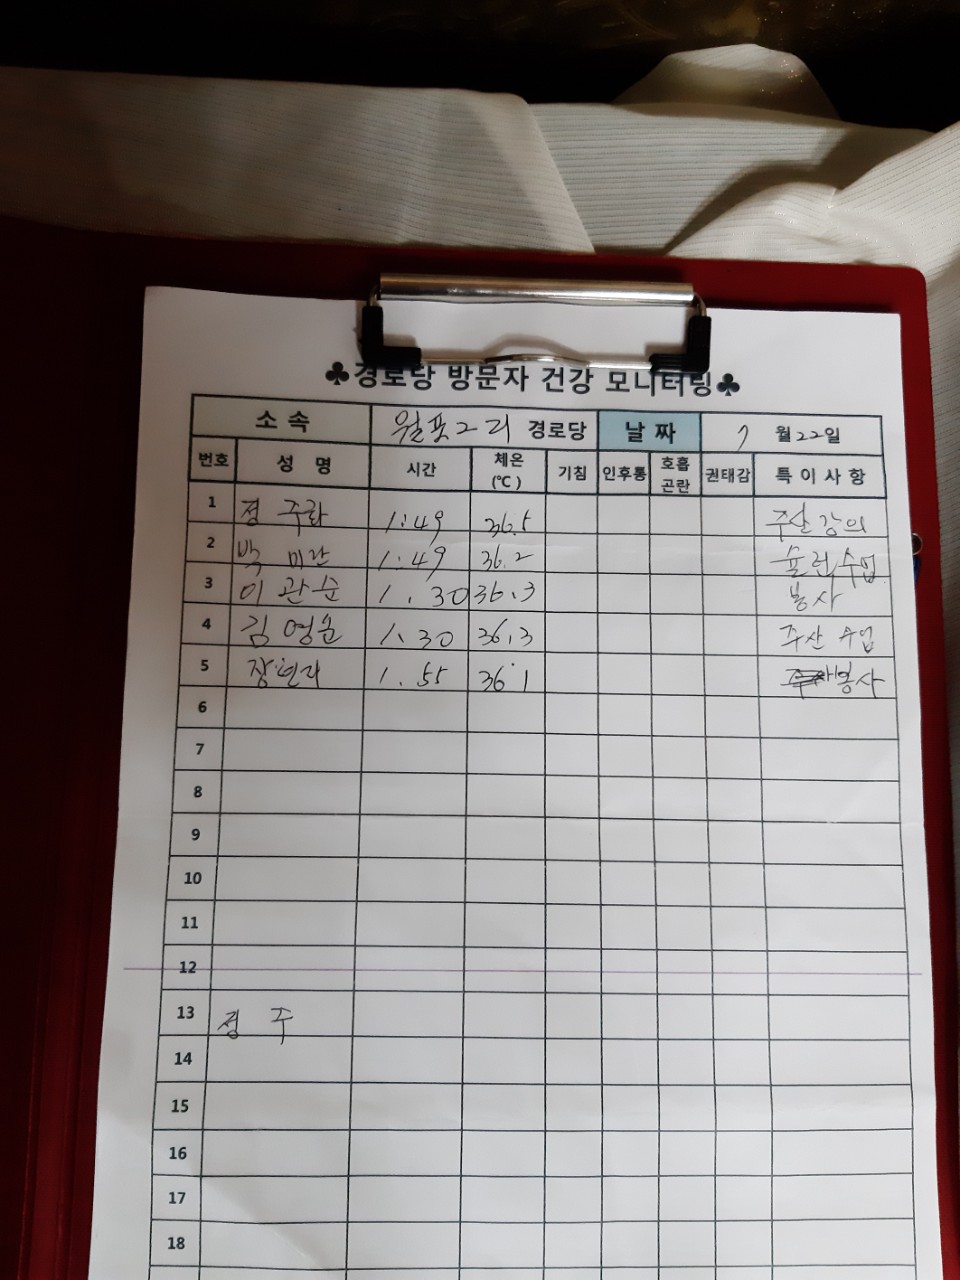 ♣경로당 방문자 건강 모니터링♣
소 속 월포2리 경로당 날 짜 7 월 22일
번호 성 명 시간 체온 (℃) 기침 인후통 호흡 곤란 권태감 특 이 사 항
1 정 주라 1:49 36.5 주산 강의
2 박 미란 1:49 36.2 수업
3 이 관순 1.30 36.3 봉사
4 김영순 1.30 36.3 주산 수업
5 1.55 36.1 봉사
6
7
8
9
10
11
12
13 정 주
14
15
16
17
18